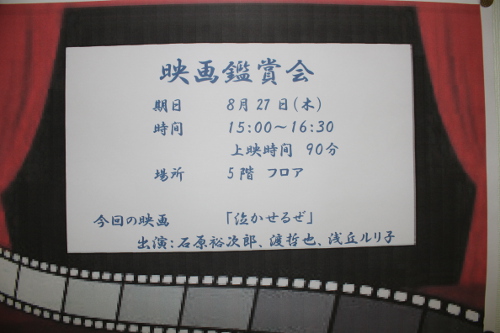 映画鑑賞会
期日 8月27日(木)
時間 15:00～16:30
上映時間 90分
場所 5階 フロア
今回の映画 「泣かせるぜ」
出演:石原裕次郎、渡哲也、浅丘ルリ子